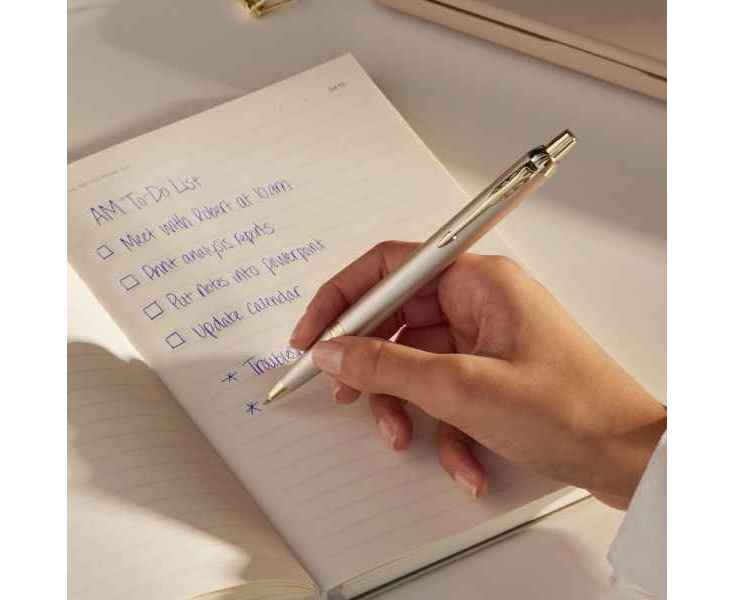 AM To-Do List
☐ Meet with Robert at 10am
☐ Print analysis reports
☐ Put notes into powerpoint
☐ Update calendar
* Trouble
*